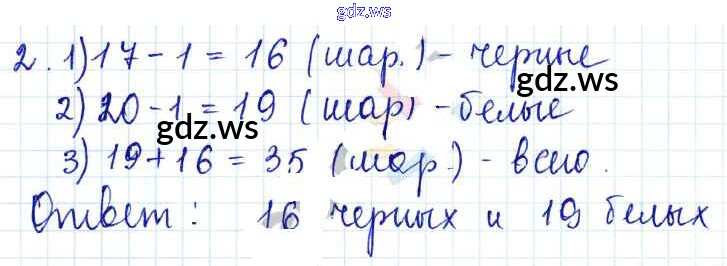 gdz.ws
2. 1) 17 - 1 = 16 (шар.) - черные
gdz.ws
2) 20 - 1 = 19 (шар) - белые
gdz.ws
3) 19 + 16 = 35 (шар.) - всего.
Ответ: 16 черных и 19 белых